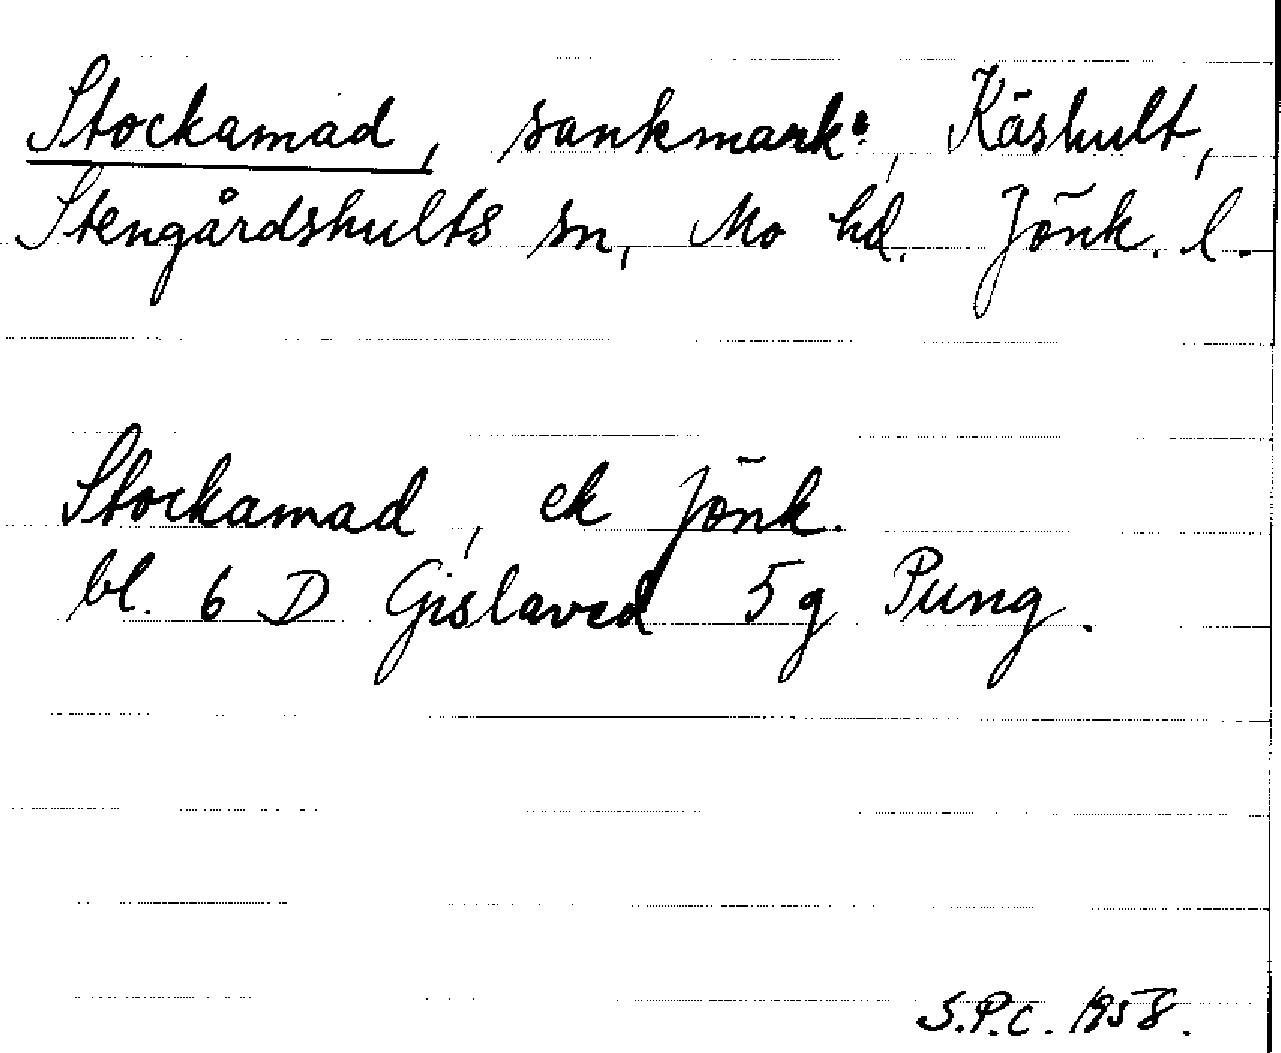 Stockamad, sankmark, Käshult,
Stengårdshults sn, Mo hd. Jönk. l.
Stockamad, ek Jönk.
bl. 6 D Gislaved 5g Pung.
S.P.C. 1958.